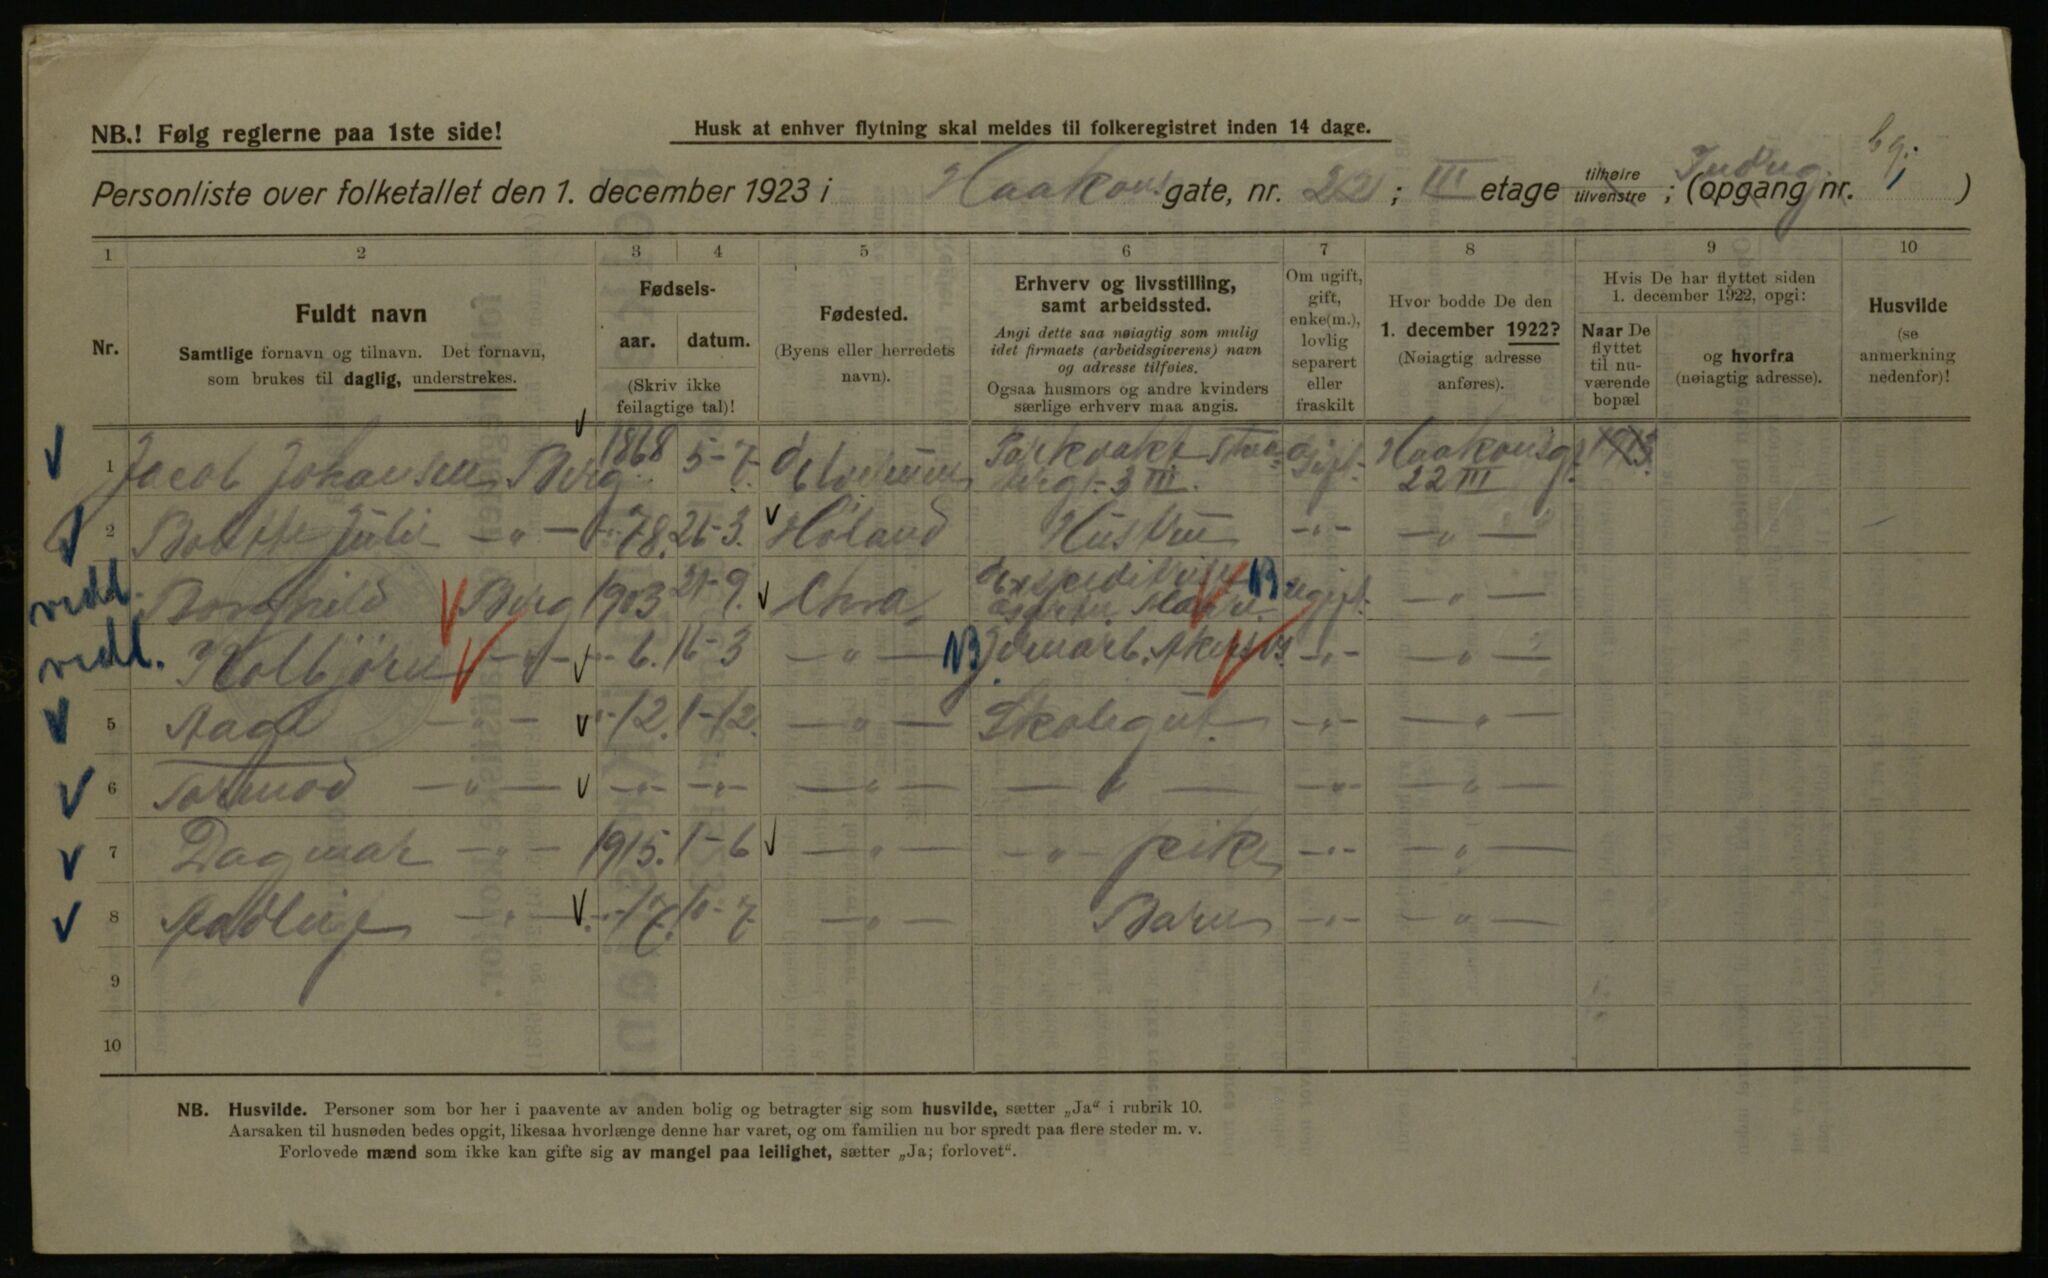 NB.! Følg reglerne paa 1ste side!
Husk at enhver flytning skal meldes til folkeregistret inden 14 dage.
Personliste over folketallet den 1. december 1923 i Haakons gate, nr. 22; III etage tilhøire tilvenstre; (opgang nr. )
1 2 3 4 5 6 7 8 9 10
Nr.
Fuldt navn
Samtlige fornavn og tilnavn. Det fornavn,
som brukes til daglig, understrekes.
Fødsels-
aar. datum.
(Skriv ikke
feilagtige tal)!
Fødested.
(Byens eller herredets
navn).
Erhverv og livsstilling,
samt arbeidssted.
Angi dette saa nøiagtig som mulig
idet firmaets (arbeidsgiverens) navn
og adresse tilføies.
Ogsaa husmors og andre kvinders
særlige erhverv maa angis.
Om ugift,
gift,
enke(m.),
lovlig
separert
eller
fraskilt
Hvor bodde De den
1. december 1922?
(Nøiagtig adresse
anføres).
Hvis De har flyttet siden
1. december 1922, opgi:
Naar De
flyttet
til nu-
værende
bopæl
og hvorfra
(nøiagtig adresse).
Husvilde
(se
anmerkning
nedenfor)!
1 Jacob Johansen Berg 1868 5-7. Elverum Parkvakt 3 III. Gift. Haakonsgt. 22 III 1913
2 Bolette Julie -"- -"- 78. 26-3. Høland Hustru -"- -"-
vedl. Borghild Berg 1903 21-9. Chra NB ugift. -"-
vedl. Kolbjörn -"- -"- 6. 16-3 -"- NB Jernarb. Akers -"- -"-
5 Aage -"- -"- 12. 1-12. -"- Skolegut. -"- -"-
6 Tormod -"- -"- -"- -"- -"- -"- -"-
7 Dagmar -"- 1915. 1-6 -"- -"- pike -"- -"-
8 -"- -"- 17. 10-7 -"- Barn -"- -"-
9
10
NB. Husvilde. Personer som bor her i paavente av anden bolig og betragter sig som husvilde, sætter „Ja“ i rubrik 10.
Aarsaken til husnøden bedes opgit, likesaa hvorlænge denne har varet, og om familien nu bor spredt paa flere steder m. v.
Forlovede mænd som ikke kan gifte sig av mangel paa leilighet, sætter „Ja; forlovet“.